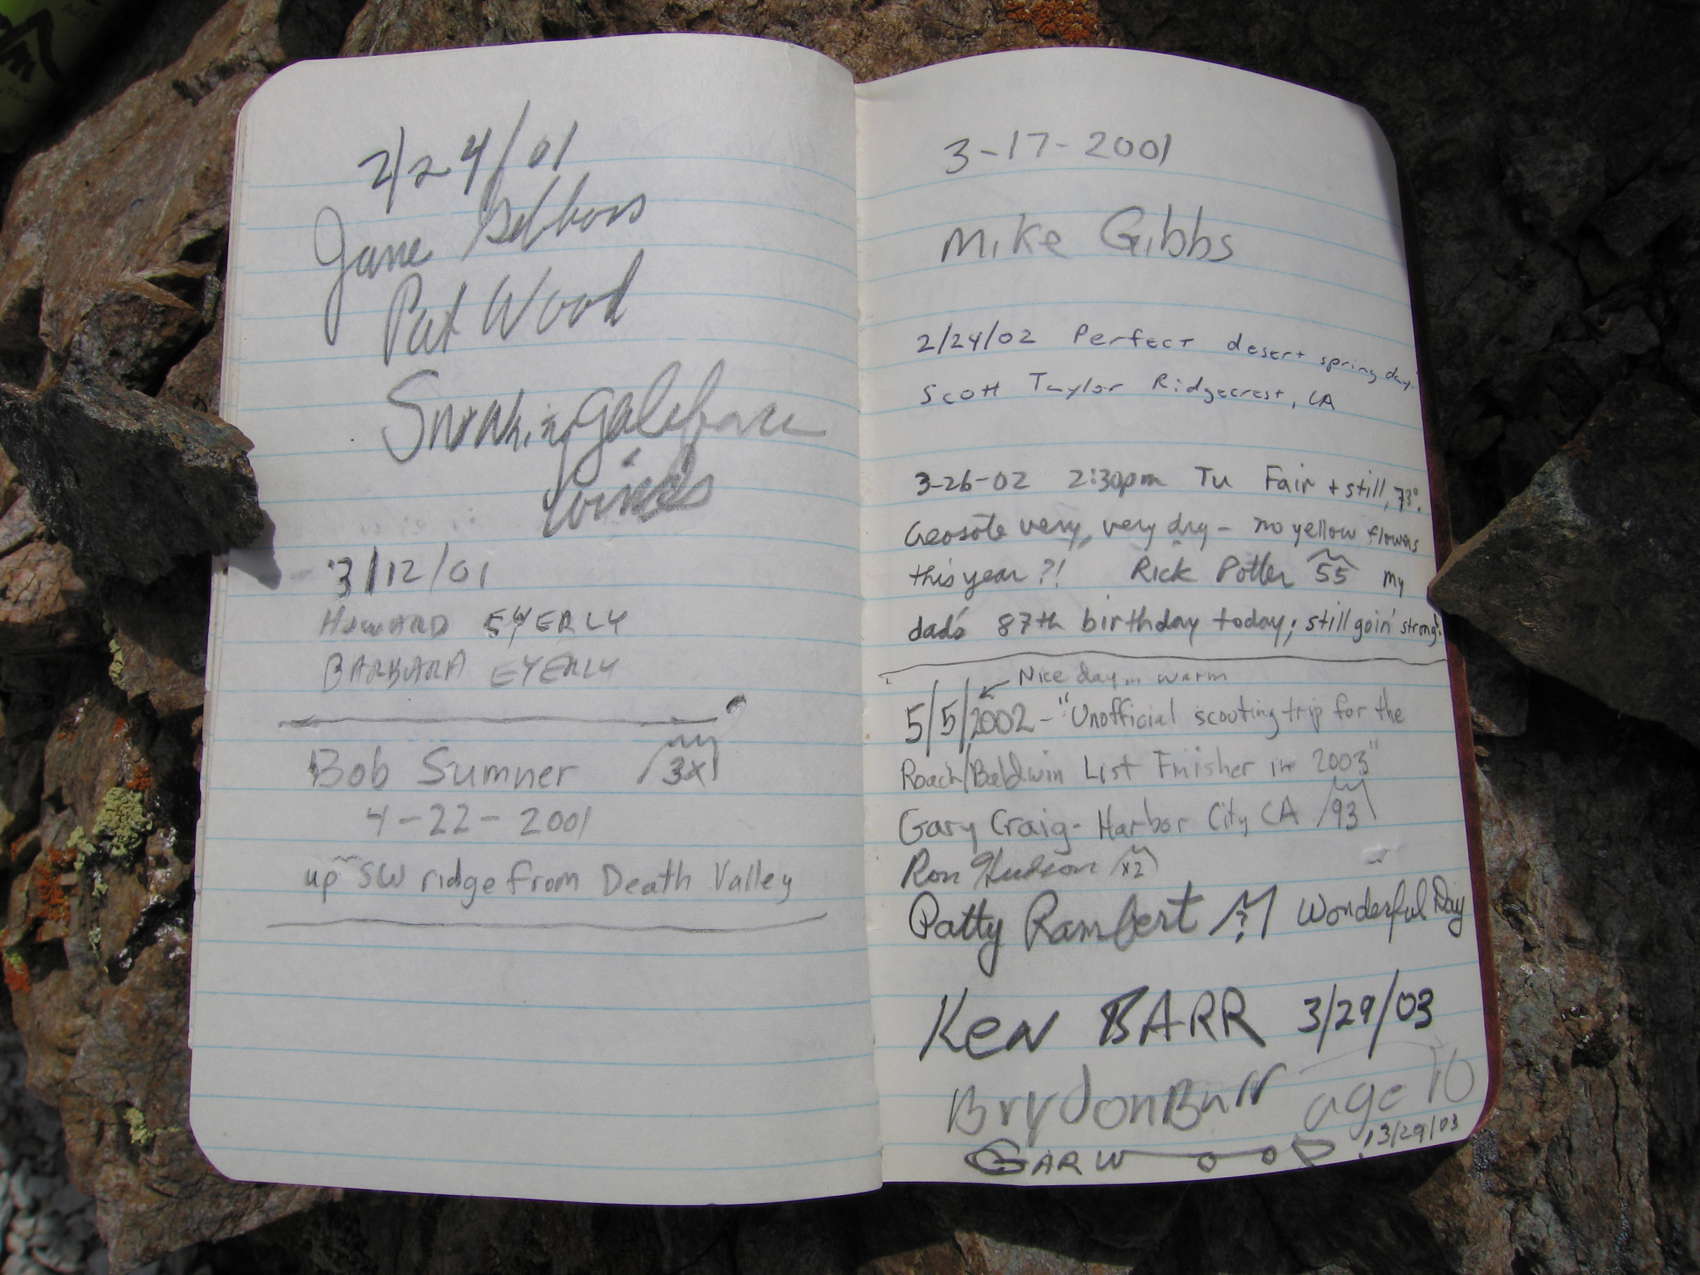 2/24/01
Jane
Pat Wood
gale force
winds
3/12/01
HOWARD EYERLY
BARBARA EYERLY
Bob Sumner 3x
4-22-2001
up SW ridge from Death Valley
3-17-2001
Mike Gibbs
2/24/02 Perfect desert spring day
Scott Taylor Ridgecrest, CA
3-26-02 2:30pm Tu Fair + still, 73°.
Creosote very, very dry - no yellow flowers
this year?! Rick Potter 55 my
dad's 87th birthday today; still goin' strong.
Nice day... warm
5/5/2002 - "Unofficial scouting trip for the
Roach/Baldwin List Finisher in 2003"
Gary Craig - Harbor City CA 93
Ron Hudson x2
Patty Rambert ? Wonderful Day
Ken BARR 3/29/03
Brydon Barr age 10
GARWOOD! 3/29/03